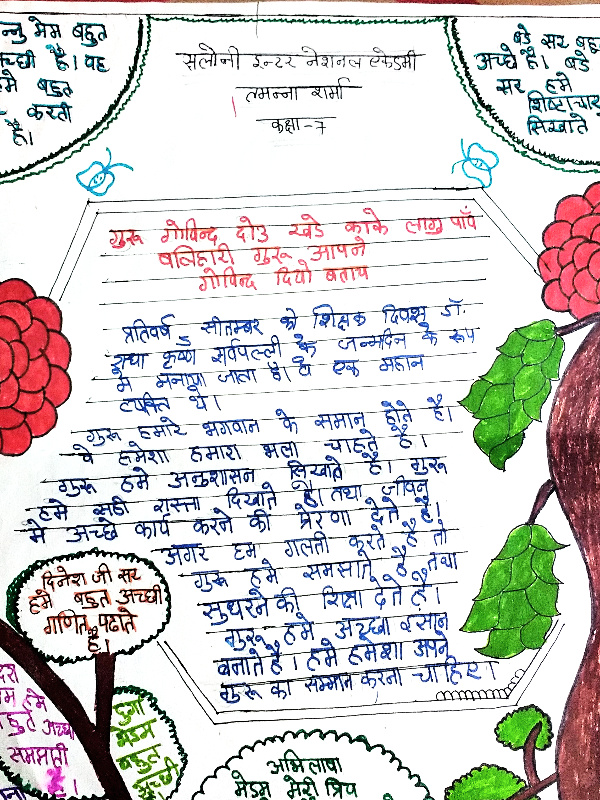 न्नु मेम बहुत
अच्छी है। वह
हमे बहुत
करती
है।
बडे सर बहुत
अच्छे है। बडे
सर हमे
शिष्टाचार
सिखाते
सलोनी इन्टर नेशनल एकेडमी
तमन्ना शर्मा
कक्षा -7
गुरू गोविन्द दोउ खडे काके लागु पॉय
बलिहारी गुरू आपने
गोविन्द दियो बताय
प्रतिवर्ष 5 सीतम्बर को शिक्षक दिवस डॉ.
राधा कृष्ण सर्वपल्ली के जन्मदिन के रूप
मे मनाया जाता है। वे एक महान
व्यक्ति थे।
गुरू हमारे भगवान के समान होते है।
वे हमेशा हमारा भला चाहते है।
गुरू हमे अनुशासन सिखाते है। गुरू
हमे सही रास्ता दिखाते है। तथा जीवन
मे अच्छे कार्य करने की प्रेरणा देते है।
अगर हम गलती करते है तो
गुरू हमे समसाते है तथा
सुधरने की शिक्षा देते है।
गुरू हमे अच्छा इसान
बनाते है। हमे हमेशा अपने
गुरू का सम्मान करना चाहिए।
दिनेश जी सर
हमे बहुत अच्छी
गणित पढाते
है।
हमे
बहुत अच्छा
समझाती
मेडम
बहुत
अच्छी
अभिलाषा
मेडम मेरी प्रिय